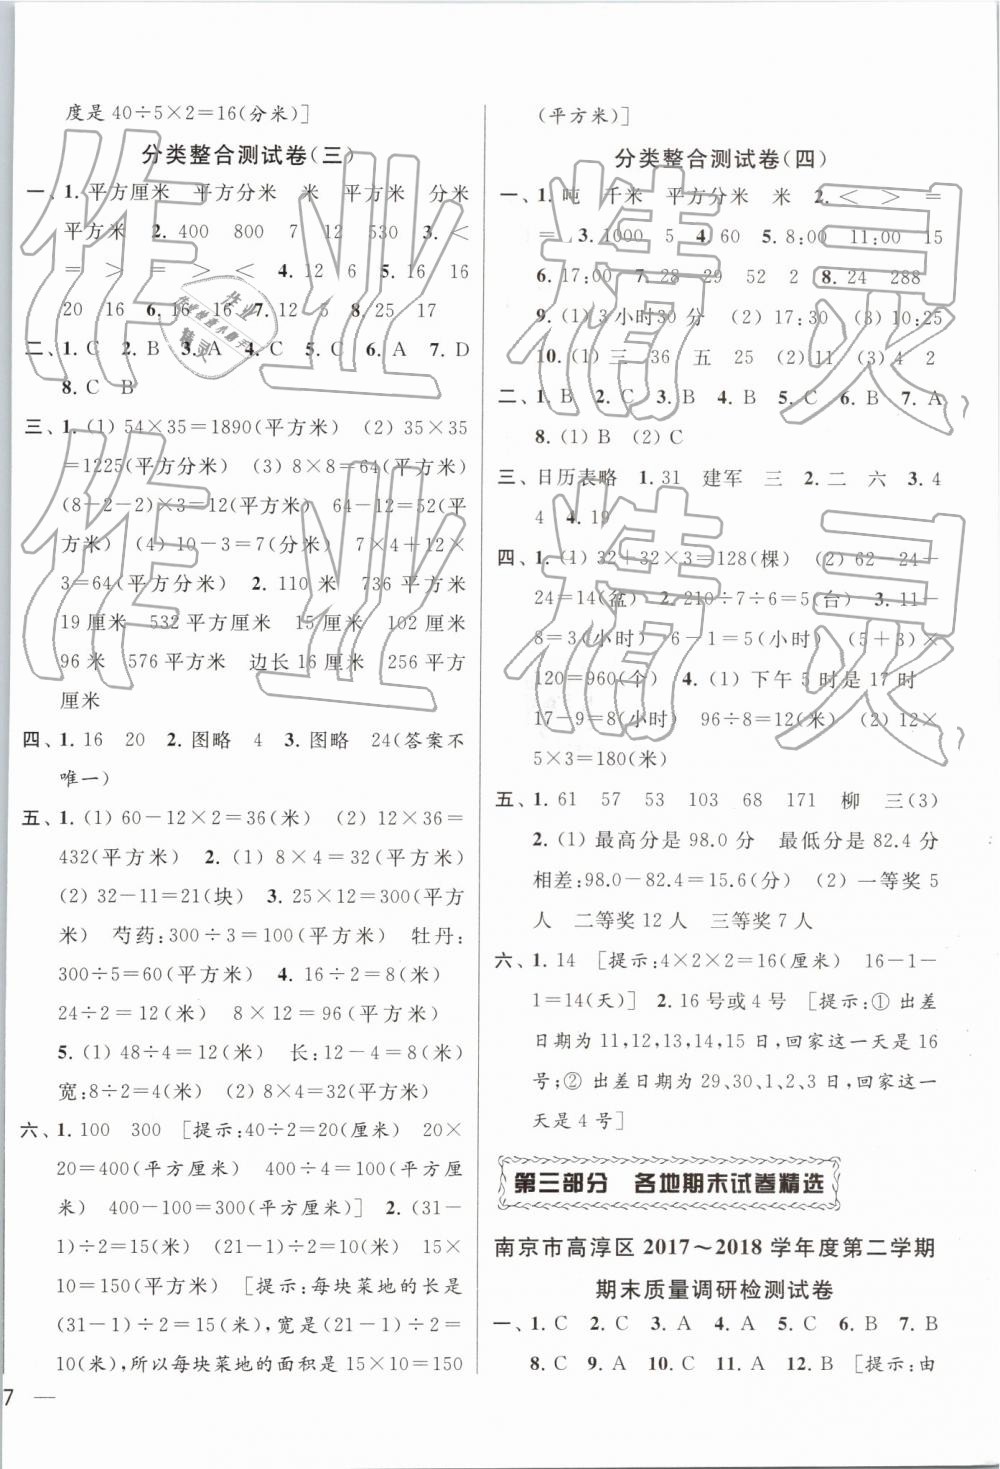 度是 40÷5×2=16(分米)]
分类整合测试卷(三)
一、1. 平方厘米 平方分米 米 平方千米 分米
平方米 2. 400 800 7 12 530 3. <
= > > = > < 4. 12 6 5. 16 16
20 16 6. 16 16 7. 12 5 8. 25 17
二、1. C 2. B 3. A 4. C 5. C 6. A 7. D
8. C B
三、1. (1) 54×35=1890(平方米) (2) 35×35
=1225(平方分米) (3) 8×8=64(平方米)
(8-2-2)×3=12(平方米) 64-12=52(平
方米) (4) 10-3=7(分米) 7×4+12×
3=64(平方分米) 2. 110 米 736 平方米
19 厘米 532 平方厘米 15 厘米 102 厘米
96 米 576 平方米 边长 16 厘米 256 平方
厘米
四、1. 16 20 2. 图略 4 3. 图略 24(答案不
唯一)
五、1. (1) 60-12×2=36(米) (2) 12×36=
432(平方米) 2. (1) 8×4=32(平方米)
(2) 32-11=21(块) 3. 25×12=300(平方
米) 芍药:300÷3=100(平方米) 牡丹:
300÷5=60(平方米) 4. 16÷2=8(米)
24÷2=12(米) 8×12=96(平方米)
5. (1) 48÷4=12(米) 长:12-4=8(米)
宽:8÷2=4(米) (2) 8×4=32(平方米)
六、1. 100 300 [提示:40÷2=20(厘米) 20×
20=400(平方厘米) 10×10=100(平方厘
米) 400-100=300(平方厘米)] 2. (31-
1)÷2=15(米) (21-1)÷2=10(米) 15×
10=150(平方米) [提示:每块菜地的长是
(31-1)÷2=15(米),宽是(21-1)÷2=
10(米),所以每块菜地的面积是 15×10=150
7 —
(平方米)]
分类整合测试卷(四)
一、1. 吨 千米 平方分米 米 2. < > =
= 3. 1000 5 4. 60 5. 8:00 11:00 15
6. 17:00 7. 28 29 52 2 8. 24 288
9. (1) 3 小时30 分 (2) 17:30 (3) 10:25
10. (1) 三 36 五 25 (2) 11 (3) 4 2
二、1. B 2. C 3. B 4. B 5. C 6. B 7. A
8. (1) B (2) C
三、日历表略 1. 31 建军 三 2. 二 六 3. 4
4 4. 19
四、1. (1) 32+32×3=128(棵) (2) 62-24-
24=14(盆) 2. 210÷7÷6=5(台) 3. 11-
8=3(小时) 6-1=5(小时) (5+3)×
120=960(个) 4. (1) 下午 5 时是 17 时
17-9=8(小时) 96÷8=12(米) (2) 12×
5×3=180(米)
五、1. 61 57 53 103 68 171 柳 三(3)
2. (1) 最高分是 98.0 分 最低分是 82.4 分
相差:98.0-82.4=15.6(分) (2) 一等奖 5
人 二等奖 12 人 三等奖 7 人
六、1. 14 [提示:4×2×2=16(厘米) 16-1-
1=14(天)] 2. 16 号或 4 号 [提示:① 出差
日期为 11,12,13,14,15 日,回家这一天是 16
号;② 出差日期为 29、30、1、2、3 日,回家这一
天是 4 号]
第三部分 各地期末试卷精选
南京市高淳区 2017～2018 学年度第二学期
期末质量调研检测试卷
一、1. C 2. C 3. A 4. A 5. C 6. B 7. B
8. C 9. A 10. C 11. A 12. B [提示:由